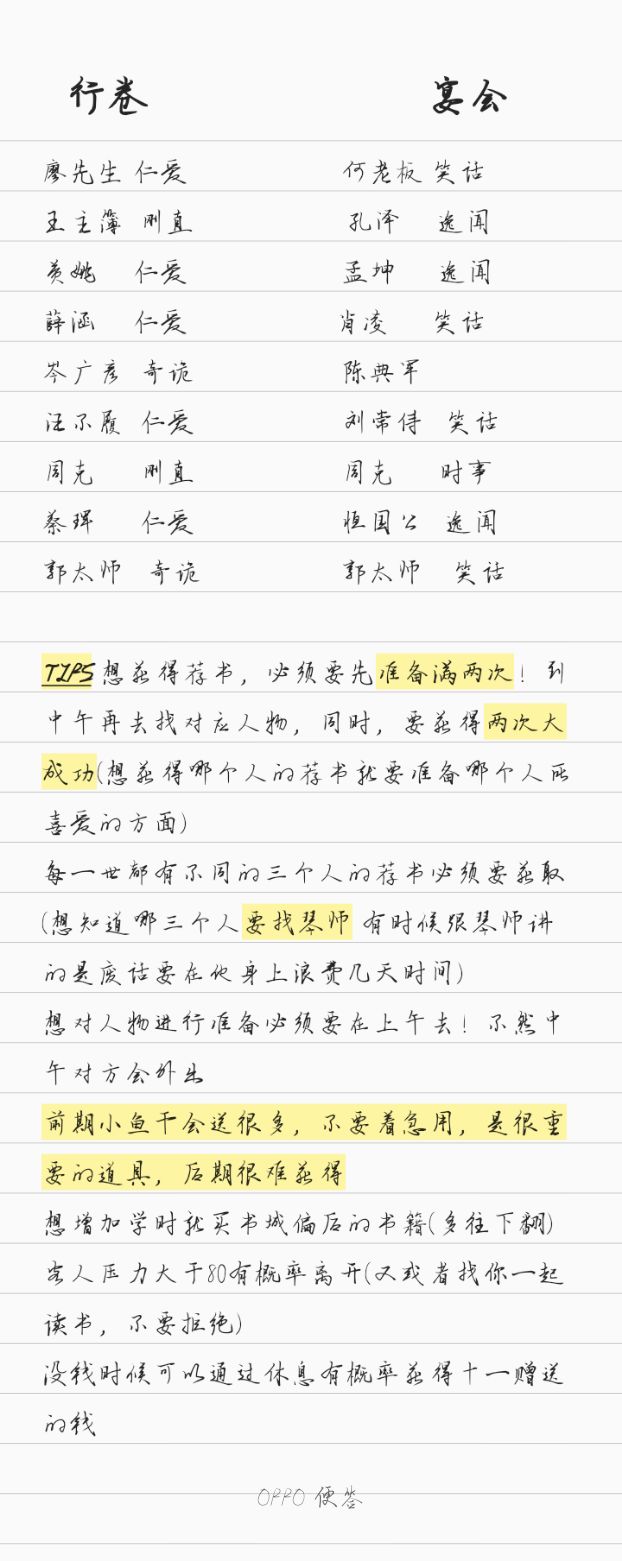 行卷 宴会
廖先生 仁爱 何老板 笑话
王主簿 刚直 孔泽 逸闻
黄姚 仁爱 孟坤 逸闻
薛涵 仁爱 肖凌 笑话
岑广彦 奇诡 陈典军
汪不履 仁爱 刘常侍 笑话
周克 刚直 周克 时事
蔡珲 仁爱 恒国公 逸闻
郭太师 奇诡 郭太师 笑话
TIPS 想获得荐书，必须要先准备满两次！到
中午再去找对应人物，同时，要获得两次大
成功(想获得哪个人的荐书就要准备哪个人所
喜爱的方面)
每一世都有不同的三个人的荐书必须要获取
(想知道哪三个人要找琴师 有时候很琴师讲
的是废话要在他身上浪费几天时间)
想对人物进行准备必须要在上午去！不然中
午对方会外出
前期小鱼干会送很多，不要着急用，是很重
要的道具，后期很难获得
想增加学时就买书城偏后的书籍(多往下翻)
客人压力大于80有概率离开(又或者找你一起
读书，不要拒绝)
没钱时候可以通过休息有概率获得十一赠送
的钱
OPPO 便签